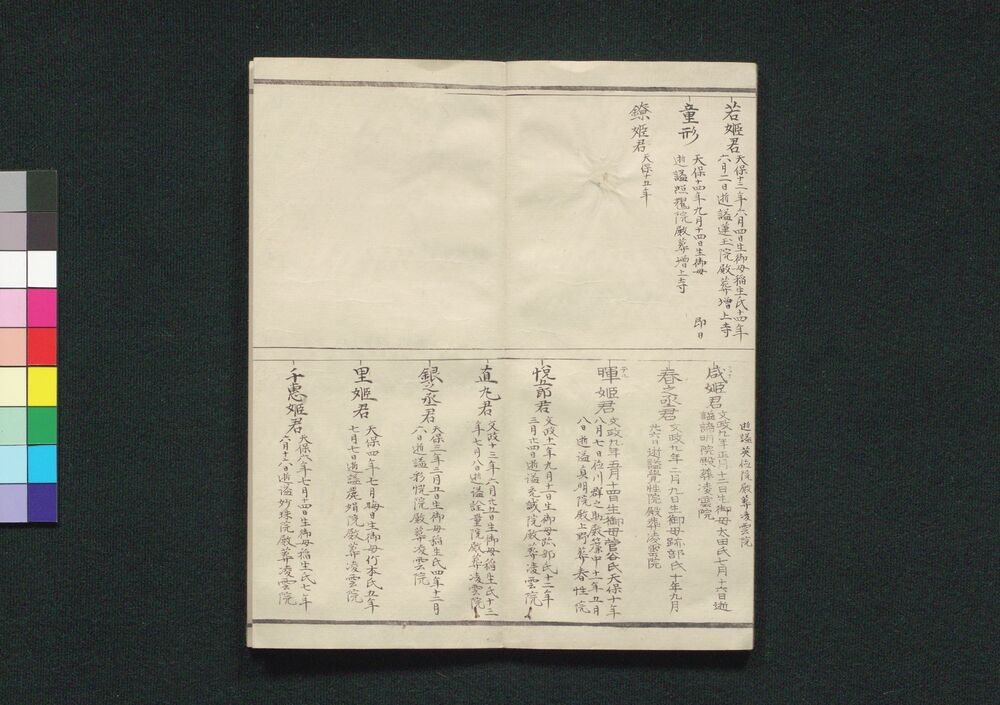 若姫君
天保十三年六月四日生御母稲生氏十四年
六月二日逝謚蓮玉院殿葬増上寺
童形
天保十四年九月十四日生御母 即日
逝謚照耀院殿葬増上寺
鐐姫君
天保十五年
逝謚英位院殿葬凌雲院
咸姫君
文政九年正月十二日生御母太田氏七月十六日逝
謚諦明院殿葬凌雲院
春之丞君
文政九年二月九日生御母跡部氏十年九月
廿六日逝謚覺性院殿葬凌雲院
暉姫君
文政九年五月十四日生御母菅谷氏天保十年
八月七日位川群之助殿簾中十一年五月
八日逝謚貞明院殿上野葬春性院
悦五郎君
文政十一年九月十一日生御母跡部氏十二年
三月廿四日逝謚充誠院殿葬凌雲院
直丸君
文政十三年六月廿五日生御母稲生氏十三
年七月八日逝謚詮量院殿葬凌雲院
銀之丞君
天保三年二月五日生御母稲生氏四年十二月
八日逝謚彩恍院殿葬凌雲院
里姫君
天保四年七月晦日生御母竹本氏五年
七月七日逝謚麗娟院殿葬凌雲院
千惠姫君
天保八年七月十四日生御母稲生氏七年
六月十八日逝謚妙珠院殿葬凌雲院